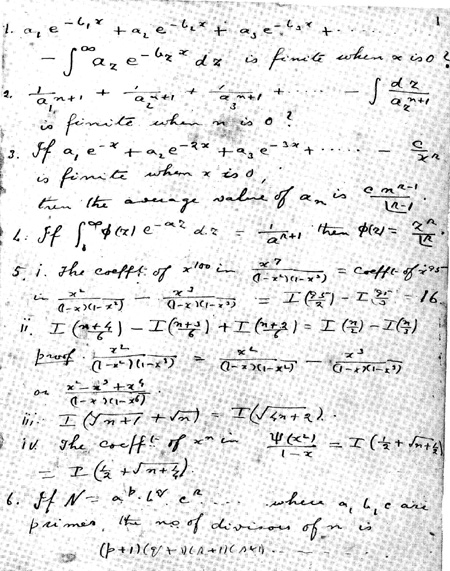 1
1. a₁ e^{-b₁x} + a₂ e^{-b₂x} + a₃ e^{-b₃x} + ......
- ∫^∞ a_z e^{-b_z x} dz is finite when x is 0?
2. 1/a₁^{n+1} + 1/a₂^{n+1} + 1/a₃^{n+1} + ...... - ∫ dz/a_z^{n+1}
is finite when n is 0?
3. If a₁ e^{-x} + a₂ e^{-2x} + a₃ e^{-3x} + ...... - c/x^r
is finite when x is 0,
then the average value of aₙ is c n^{r-1}/|r-1.
4. If ∫₀^∞ φ(z) e^{-az} dz = 1/a^{r+1} then φ(z) = z^r/|r.
5. i. The coefft. of x¹⁰⁰ in x⁷/(1-x²)(1-x³) = coefft of x⁹⁵
in x²/(1-x)(1-x²) - x³/(1-x)(1-x³) = I(95/2) - I(95/3) = 16.
ii. I((n+4)/6) - I((n+3)/6) + I((n+2)/6) = I(n/2) - I(n/3)
proof. x²/(1-x²)(1-x³) = x²/(1-x)(1-x²) - x³/(1-x)(1-x³)
or (x²-x³+x⁴)/(1-x)(1-x⁶).
iii. I(√n+1 + √n) = I(√4n+2).
iv. The coefft. of xⁿ in Ψ(x²)/(1-x) = I(1/2 + √n+1/2)
= I(1/2 + √n+1/4).
6. If N = a^p. b^q. c^r .... where a, b, c are
primes, the no. of divisors of n is
(p+1)(q+1)(r+1)(s+1) ......